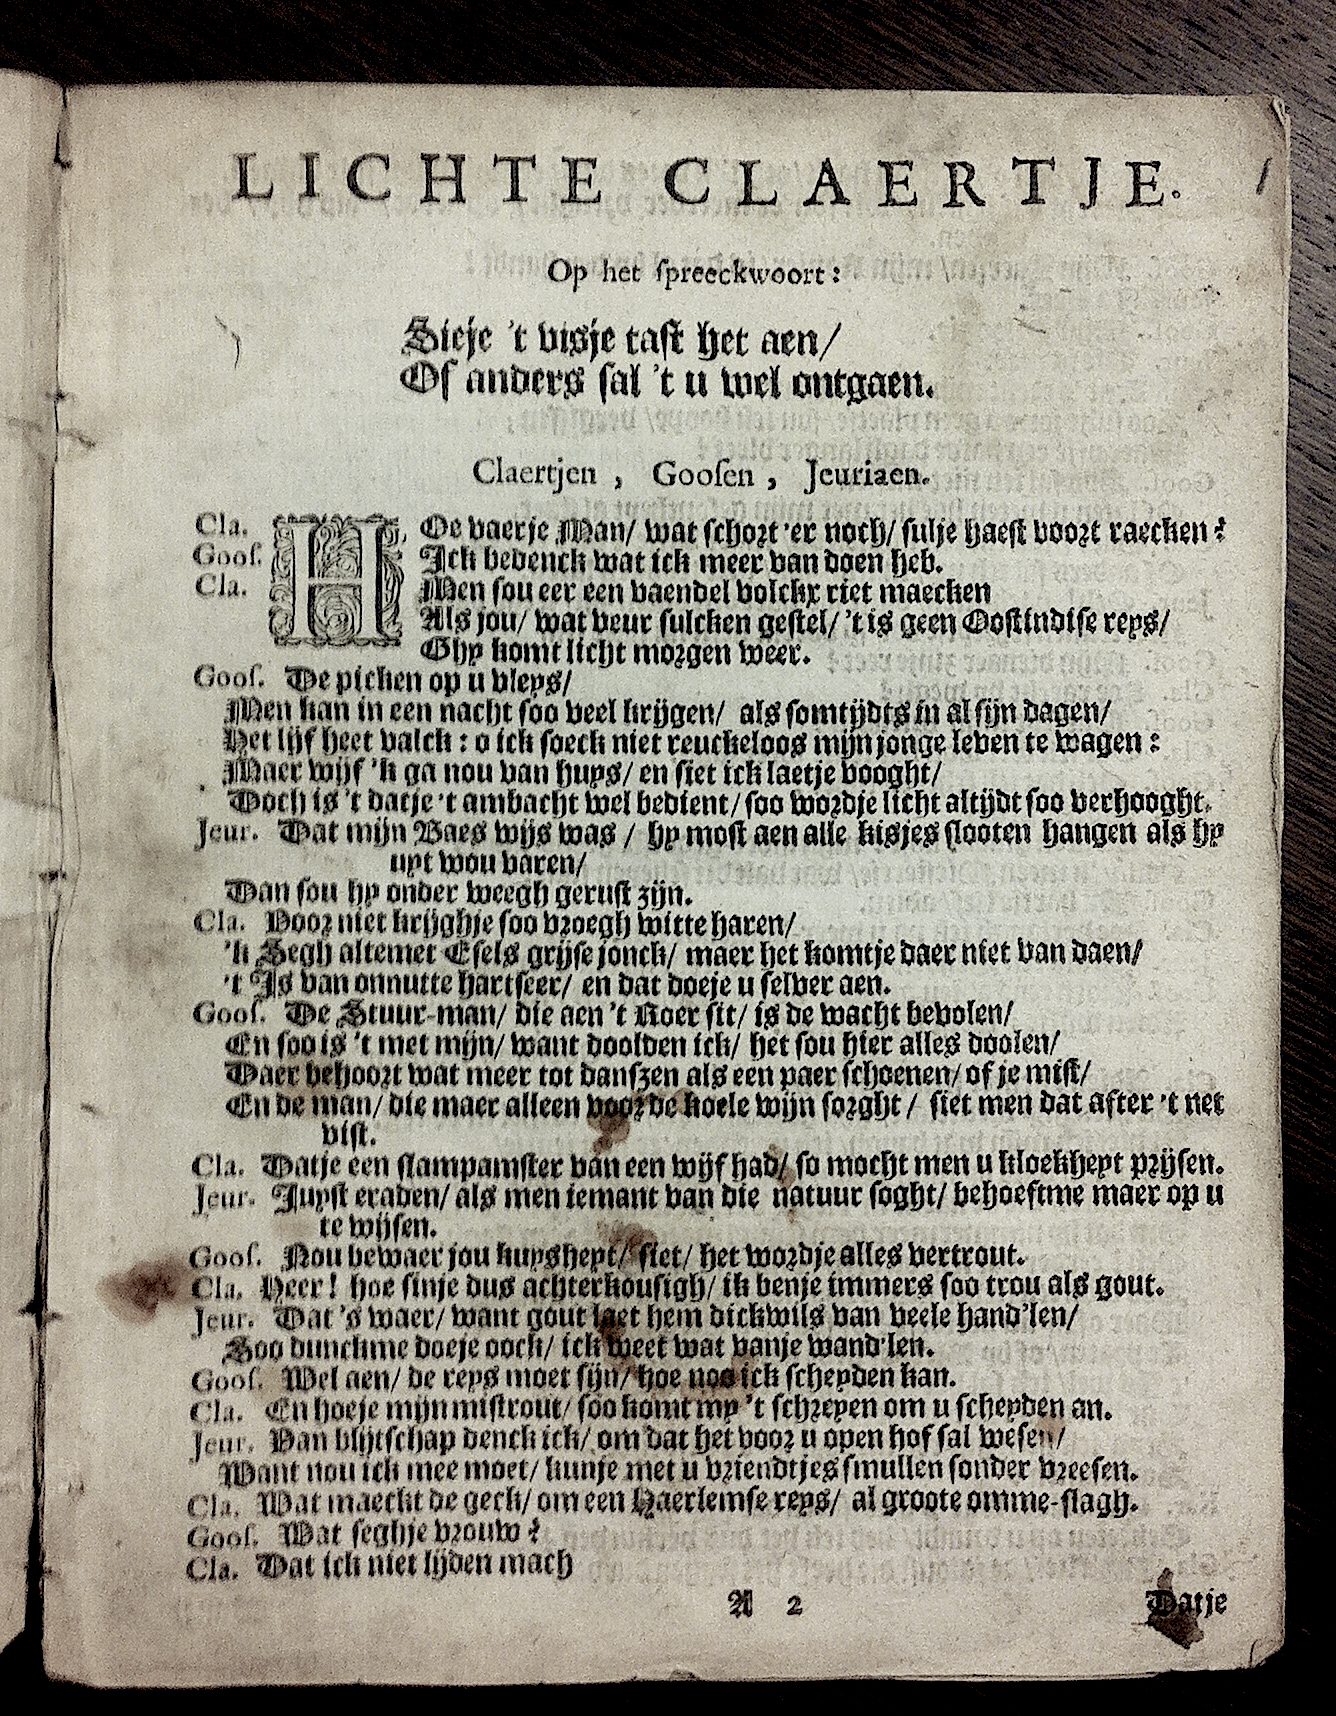 LICHTE CLAERTJE.
Op het spreeckwoort:
Sieje 't visje tast het aen/
Of anders sal 't u wel ontgaen.
Claertjen, Goosen, Jeuriaen.
Cla. HOe vaerje Man/ wat schort 'er noch/ sulje haest voort raecken?
Goos. Ick bedenck wat ick meer van doen heb.
Cla. Men sou eer een vaendel volckx riet maecken
Als jou/ wat veur sulcken gestel/ 't is geen Oostindise reys/
Ghy komt licht morgen weer.
Goos. De picken op u vleys/
Men kan in een nacht soo veel krijgen/ als somtijdts in al sijn dagen/
Het lijf heet valck: o ick soeck niet reuckeloos mijn jonge leven te wagen:
Maer wijf 'k ga nou van huys/ en siet ick laetje vooght/
Doch is 't datje 't ambacht wel bedient/ soo wordje licht altijdt soo verhooght.
Jeur. Dat mijn Baes wijs was/ hy most aen alle kisjes slooten hangen als hy
uyt wou varen/
Dan sou hy onder weegh gerust zijn.
Cla. Voor niet krijghje soo vroegh witte haren/
'k Segh altemet Esels grijse jonck/ maer het komtje daer niet van daen/
't Is van onnutte hartseer/ en dat doeje u selver aen.
Goos. De Stuur-man/ die aen 't Roer sit/ is de wacht bevolen/
En soo is 't met mijn/ want doolden ick/ het sou hier alles doolen/
Daer behoort wat meer tot danszen als een paer schoenen/ of je mist/
En de man/ die maer alleen voor de koele wijn sorght/ siet men dat after 't net
vist.
Cla. Datje een slampamster van een wijf had/ so mocht men u kloekheyt prijsen.
Jeur. Juyst eraden/ als men iemant van die natuur soght/ behoeftme maer op u
te wijsen.
Goos. Nou bewaer jou kuysheyt/ siet/ het wordje alles vertrout.
Cla. Heer! hoe sinje dus achterkousigh/ ik benje immers soo trou als gout.
Jeur. Dat 's waer/ want gout laet hem dickwils van veele hand'len/
Soo dunckme doeje oock/ ick weet wat vanje wand'len.
Goos. Wel aen/ de reys moet sijn/ hoe noo ick scheyden kan.
Cla. En hoeje mijn mistrout/ soo komt my 't schreyen om u scheyden an.
Jeur. Van blijtschap denck ick/ om dat het voor u open hof sal wesen/
Want nou ick mee moet/ kunje met u vriendtjes smullen sonder vreesen.
Cla. Wat maeckt de geck/ om een Haerlemse reys/ al groote omme-slagh.
Goos. Wat seghje vrouw?
Cla. Dat ick niet lijden mach
A 2 Datje